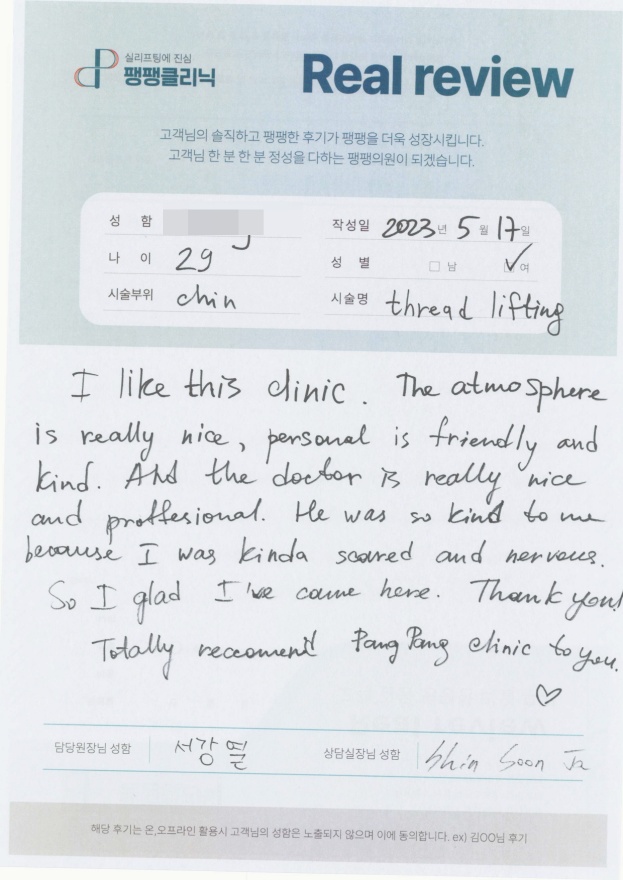 실리프팅에 진심
팽팽클리닉
Real review
고객님의 솔직하고 팽팽한 후기가 팽팽을 더욱 성장시킵니다.
고객님 한 분 한 분 정성을 다하는 팽팽의원이 되겠습니다.
성 함 작성일 2023년 5월 17일
나 이 29 성 별 남 여
시술부위 chin 시술명 thread lifting
I like this clinic. The atmosphere
is really nice, personal is friendly and
kind. And the doctor is really nice
and proffesional. He was so kind to me
because I was kinda scared and nervous.
So I glad I've came here. Thank you!
Totally reccomend Pang Pang clinic to you.
담당원장님 성함 서강열 상담실장님 성함 Shin Soon Ja
해당 후기는 온,오프라인 활용시 고객님의 성함은 노출되지 않으며 이에 동의합니다. ex) 김OO님 후기